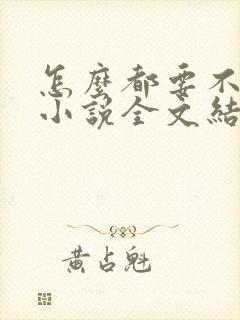 怎麼都要不
小說全文結
黃占魁